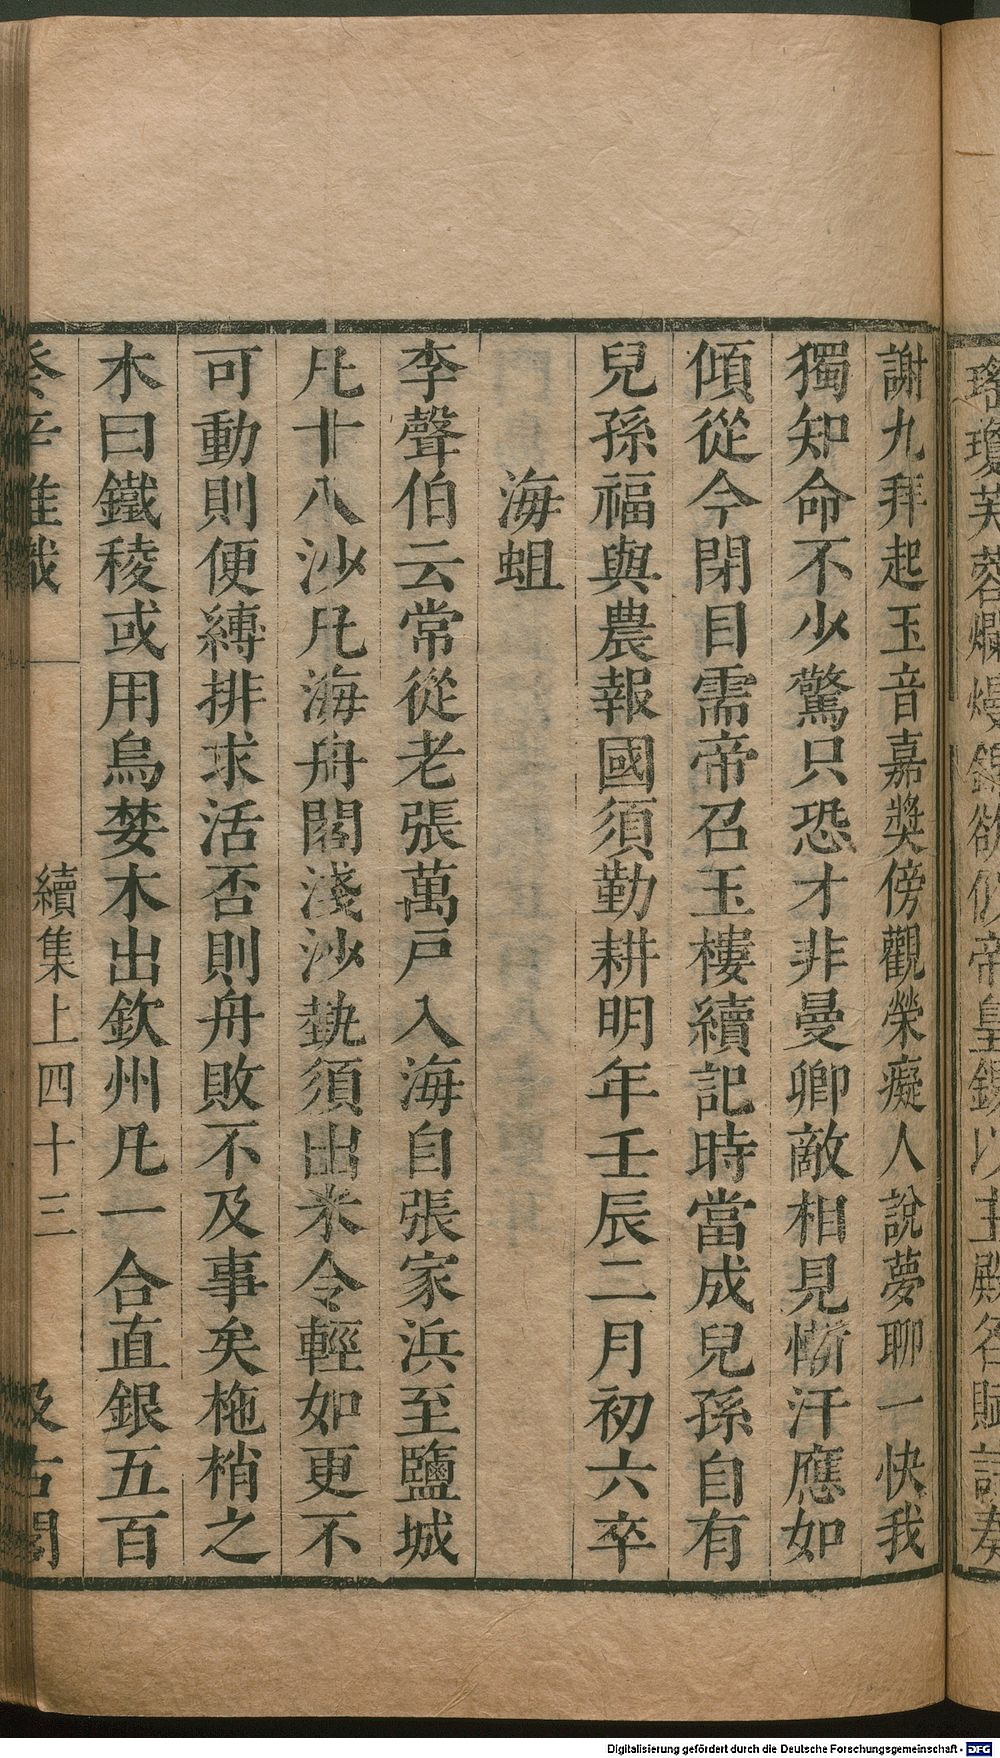 瓊芙蓉爛熳錦欲仍帝皇錫以玉殿名賦詩奏
謝九拜起玉音嘉獎傍觀榮癡人說夢聊一快我
獨知命不少驚只恐才非曼卿敵相見慚汗應如
傾從今閉目需帝召玉樓續記時當成兒孫自有
兒孫福與農報國須勤耕明年壬辰二月初六卒
海蛆
李聲伯云常從老張萬戸入海自張家浜至鹽城
凡十八沙凡海舟閣淺沙埶須出米令輕如更不
可動則便縛排求活否則舟敗不及事矣柂梢之
木曰鐵稜或用烏婪木出欽州凡一合直銀五百
癸辛雜識
續集上四十三
汲古閣
Digitalisierung gefördert durch die Deutsche Forschungsgemeinschaft - DFG